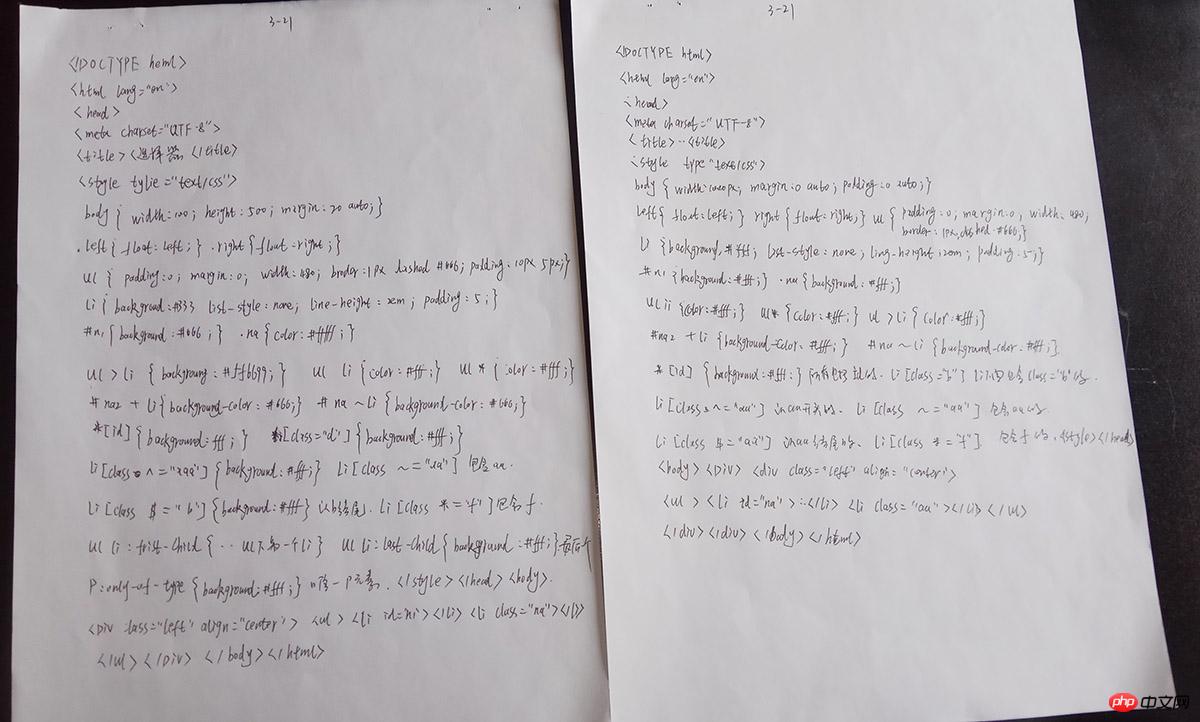 3-21
<!DOCTYPE heml>
<html lang="en">
<head>
<meta charset="UTF-8">
<title><选择器</title>
<style tylie="text/css">
body{ width:100; height:500; margin:20 auto;}
.left{ float:left;} .right{float:right;}
ul { padding:0; margin:0; width:480; broder:1px dashed #666; padding:10px 5px;}
li{ background:#333 list-style:none; line-height:2em; padding:5;}
#n1{background:#666;} .na{color:#ffff;}
ul>li { backgroung:#ff6699;} ul li{color:#fff;} ul *{color:#fff;}
#na2 + li{background-color:#666;} #na ~li{background-color:#666;}
*[id]{background:fff;} [class="d"]{background:#fff;}
li[class ^="aaa"]{background:#fff;} li[class ~="aa"] 包含aa.
li[class $="b"]{background:#fff} 以b结尾. li[class *="f"]包含f.
ul li:frist-child{.. ul下第一个li} ul li:last-child{background:#fff;}.最后个
P:only-of-type{background:#fff;} 唯一P元素. </style></head><body>.
<div class="left" align="center"> <ul><li id="n1"></li><li class="na"></li>
</ul></div> </body></html>
3-21
<!DOCTYPE html>
<html lang="en">
<head>
<meta charset="UTF-8">
<title>..<title>
<style type"text/css">
body { width:1000px; margin:0 auto; padding:0 auto;}
left{float:left;} right{float:right;} ul{padding:0; margin:0; width:480;
border:1px,dashed #666;}
li {background,#fff; list-style:none; ling-height:2em; padding:5;}
#n1{background:#fff;} .na{background:#fff;}
ul li{color:#fff;} ul*{color:#fff;} ul>li{color:#fff;}
#na2 +li {background-color:#fff;} #na ~li{background-color:#fff;}
*[id] {background:#fff;} li[class="b"] li下面包含class="b"的.
li[class ^="aa"] 以aa开头的. li[class ~="aa"] 包含aa的.
li[class $="aa"] 以aa结尾的. li[class *="f"] 包含f的.<style></head>
<body><div><div class="left" align="center">
<ul><li id="na">..</li><li class="aa"></li></ul>
</div><div></body></html>
php中文网